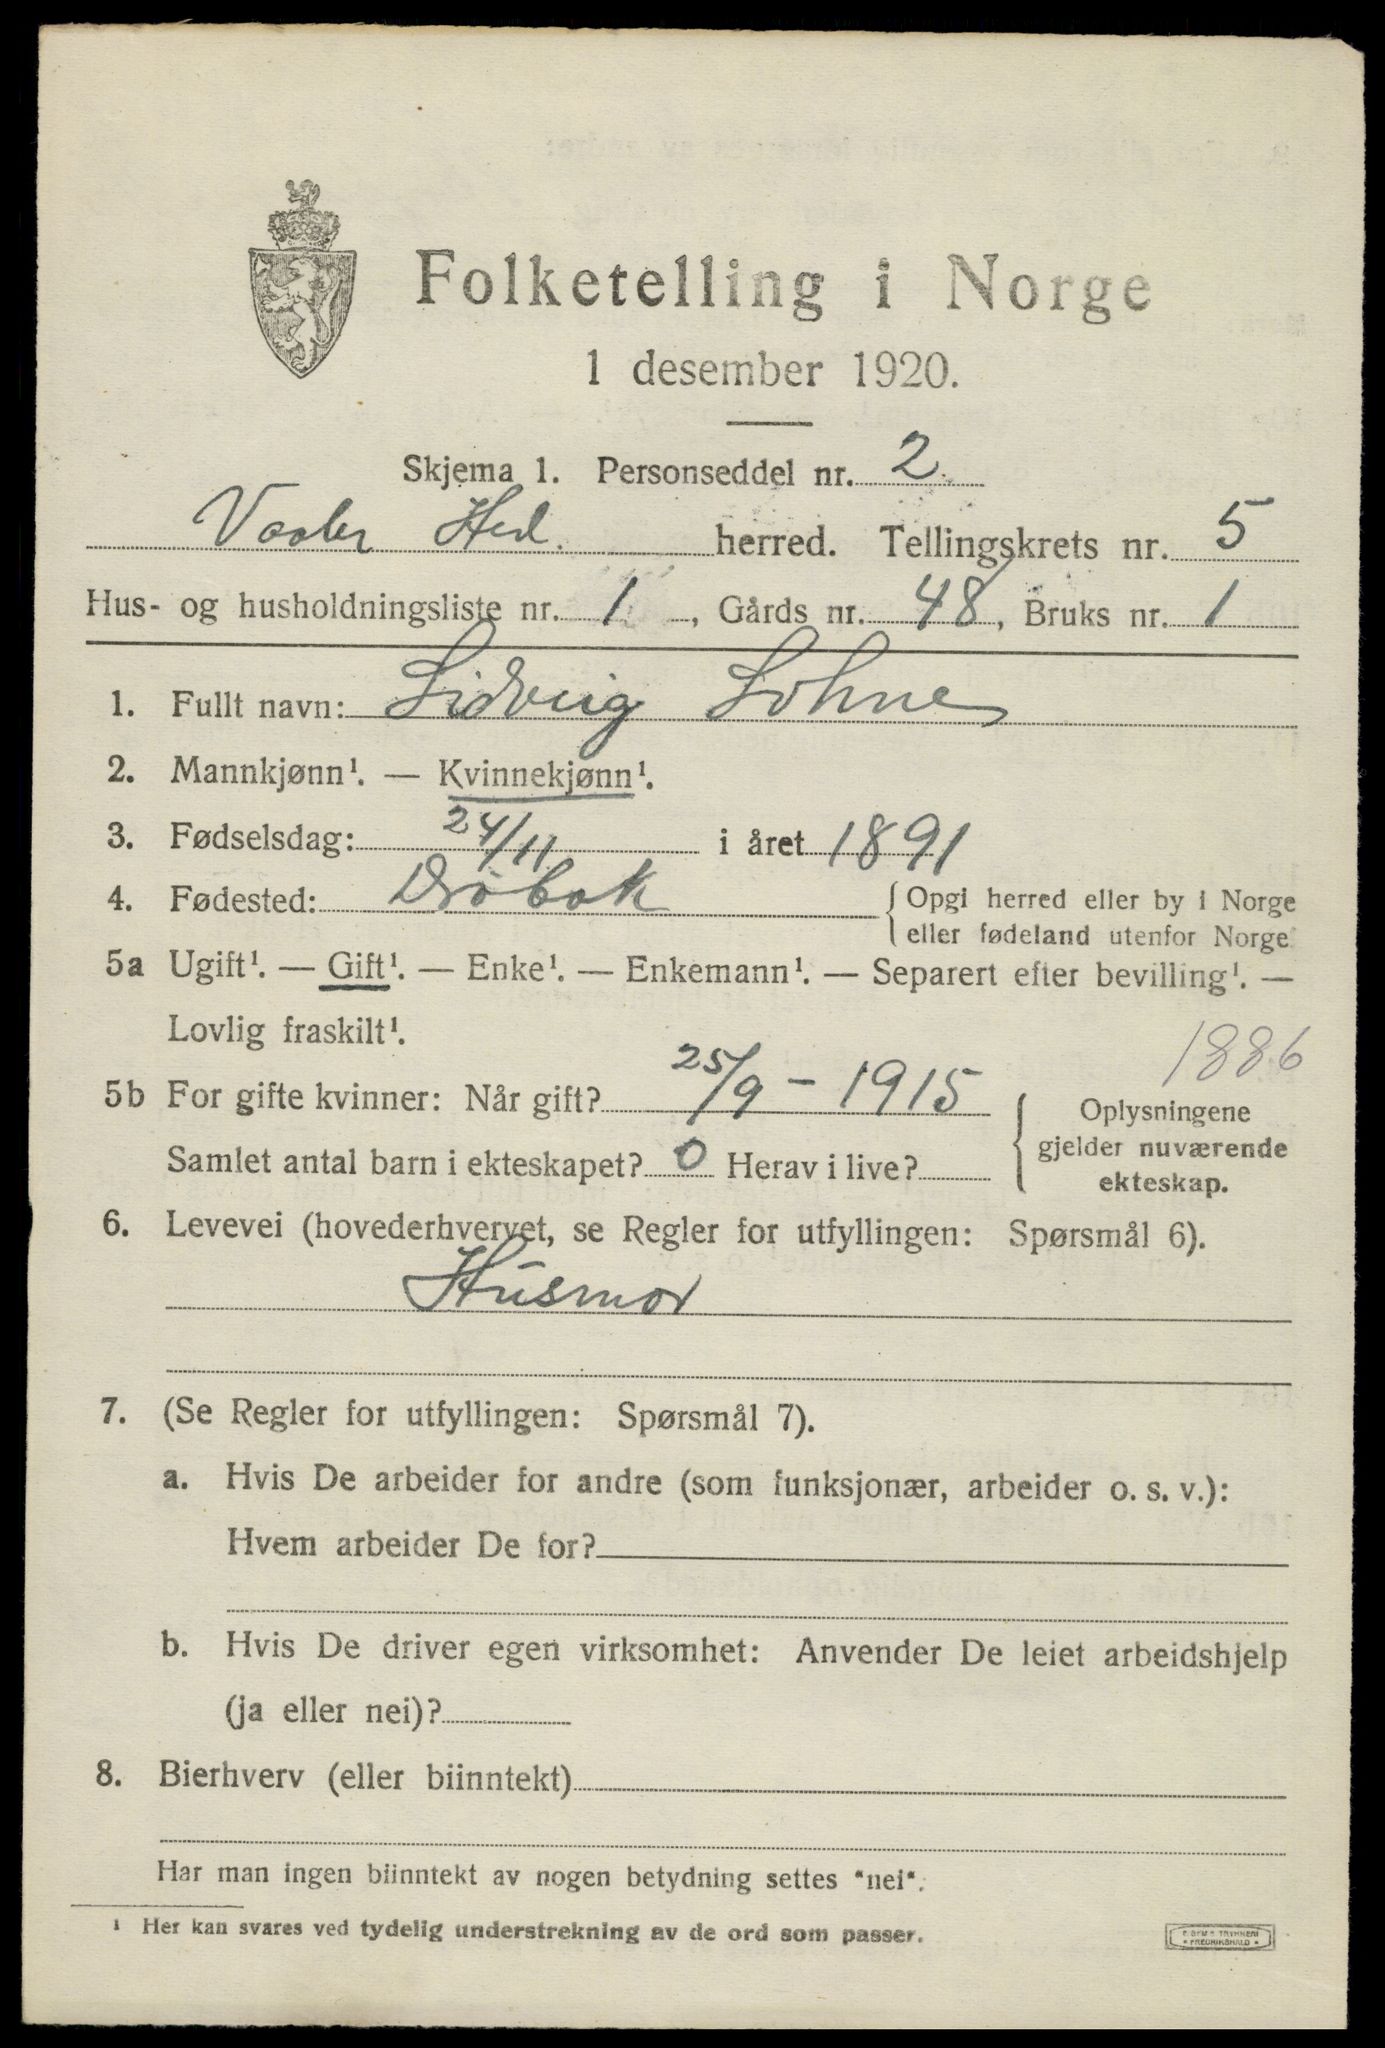 Folketelling i Norge
1 desember 1920.
Skjema 1. Personseddel nr. 2
Vaaler Hed. herred. Tellingskrets nr. 5
Hus- og husholdningsliste nr. 1, Gårds nr. 48, Bruks nr. 1
1. Fullt navn: Sidvig Lohne
2. Mannkjønn¹. — Kvinnekjønn¹.
3. Fødselsdag: 24/11 i året 1891
4. Fødested: Drøbak { Opgi herred eller by i Norge
eller fødeland utenfor Norge
5a Ugift¹. — Gift¹. — Enke¹. — Enkemann¹. — Separert efter bevilling¹. —
Lovlig fraskilt¹.
1886
5b For gifte kvinner: Når gift? 25/9 – 1915
Samlet antal barn i ekteskapet? 0 Herav i live?
Oplysningene
gjelder nuværende
ekteskap.
6. Levevei (hovederhvervet, se Regler for utfyllingen: Spørsmål 6).
Husmor
7. (Se Regler for utfyllingen: Spørsmål 7).
a. Hvis De arbeider for andre (som funksjonær, arbeider o. s. v.):
Hvem arbeider De for?
b. Hvis De driver egen virksomhet: Anvender De leiet arbeidshjelp
(ja eller nei)?
8. Bierhverv (eller biinntekt)
Har man ingen biinntekt av nogen betydning settes "nei".
¹ Her kan svares ved tydelig understrekning av de ord som passer.
TRYKKERI
FREDRIKSHALD